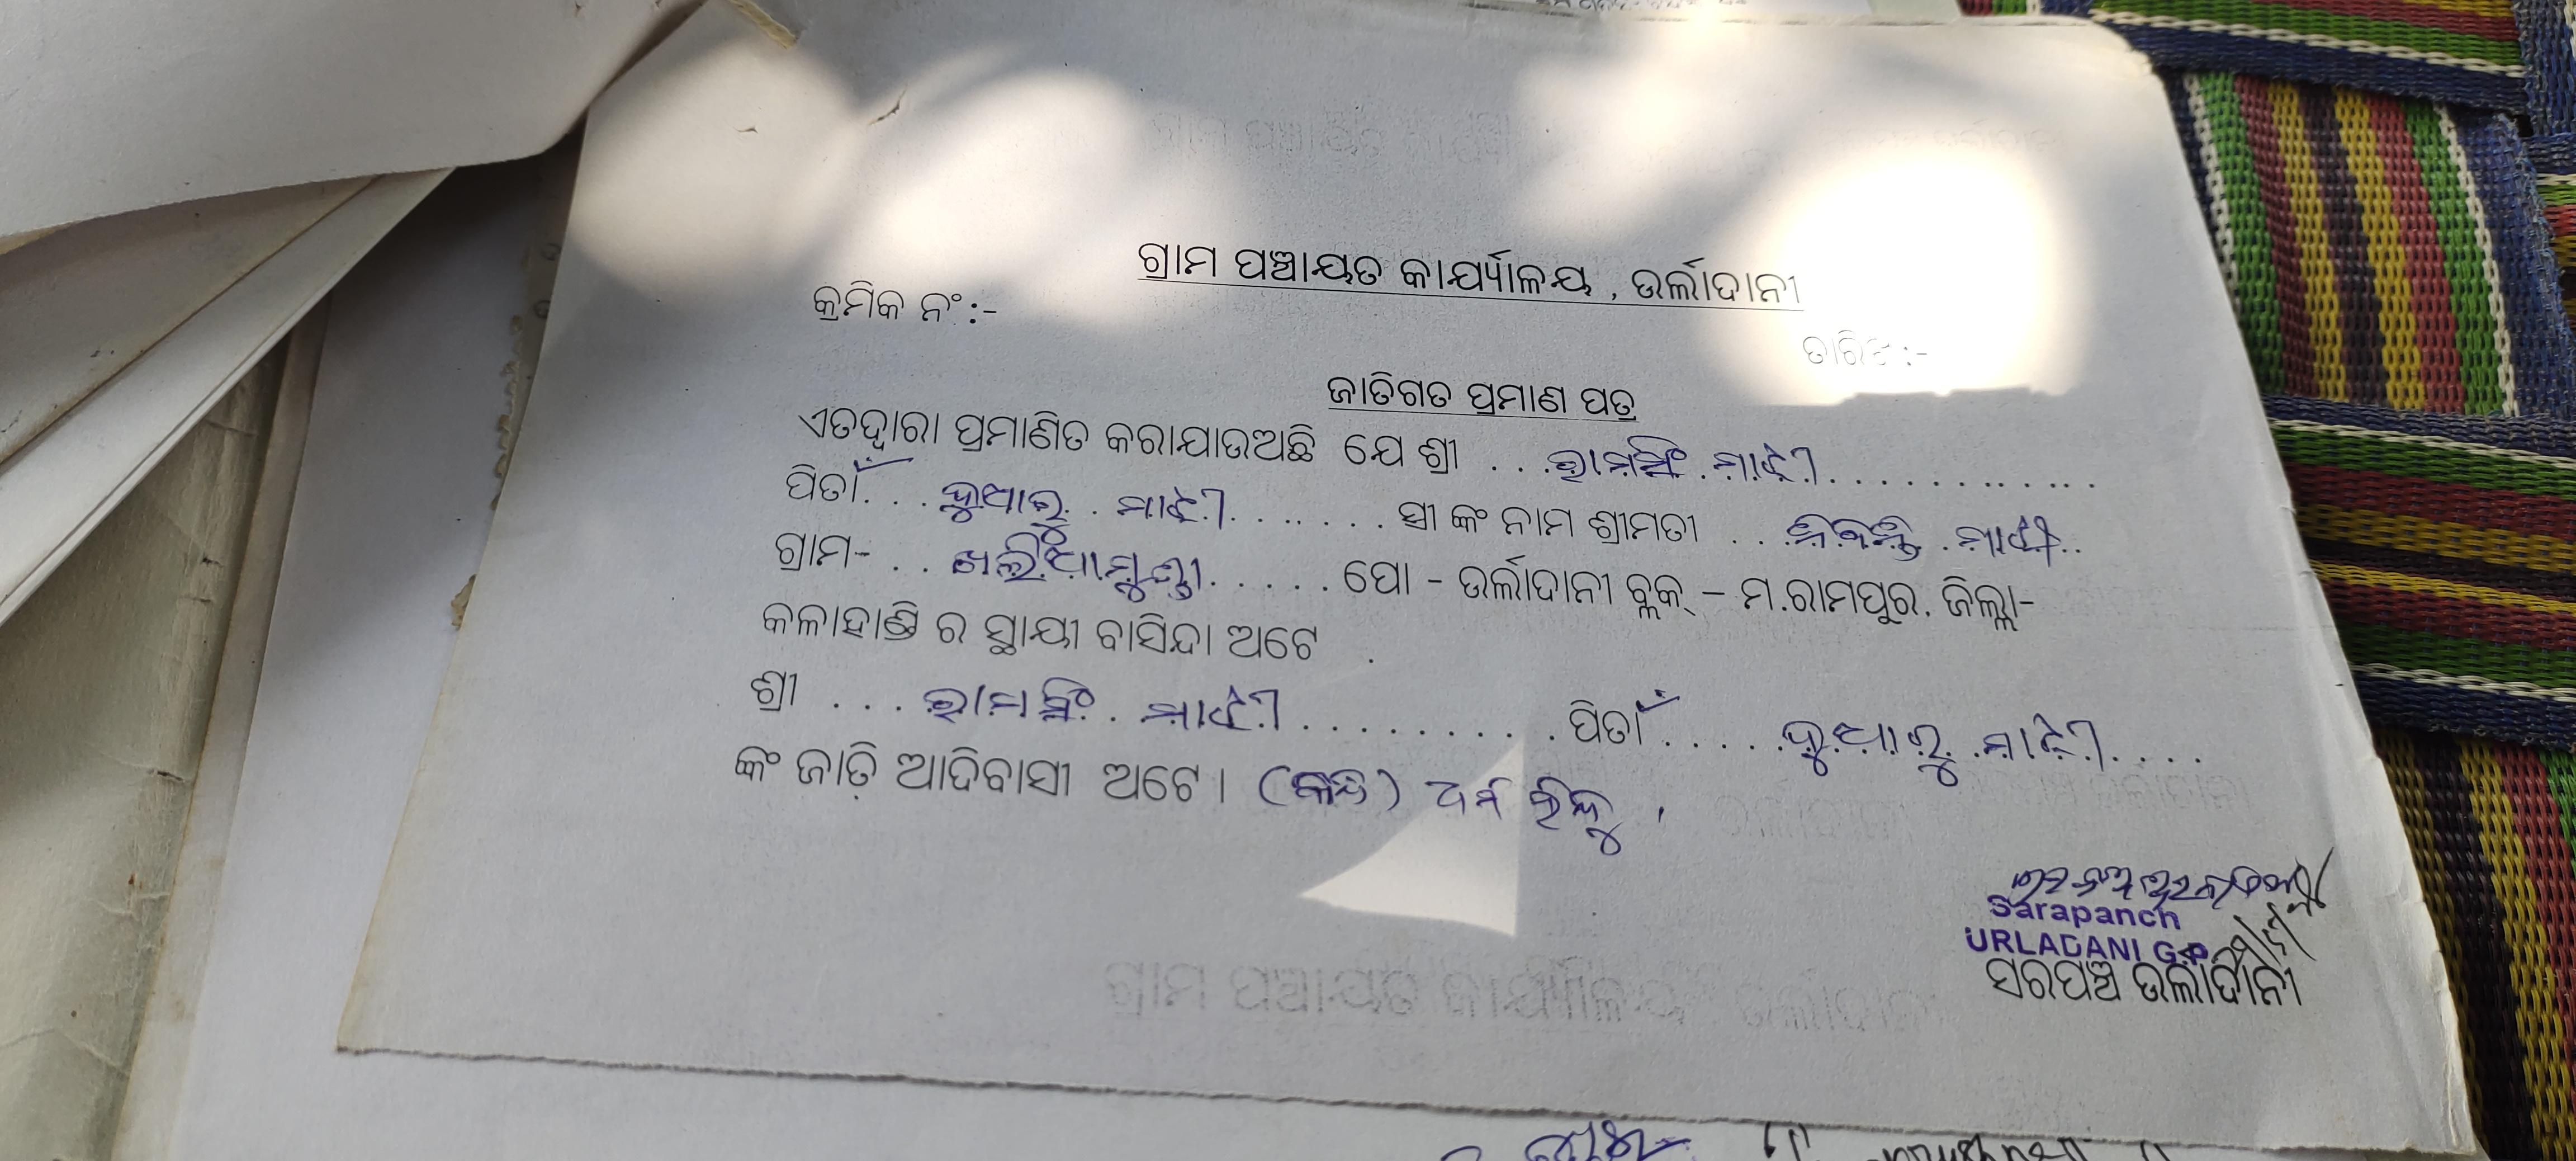 ଗ୍ରାମ ପଞ୍ଚାୟତ କାର୍ଯ୍ୟାଳୟ , ଉର୍ଲାଦାନୀ
କ୍ରମିକ ନଂ :-
ତାରିଖ :-
ଜାତିଗତ ପ୍ରମାଣ ପତ୍ର
ଏତଦ୍ୱାରା ପ୍ରମାଣିତ କରାଯାଉଅଛି ଯେ ଶ୍ରୀ ... ରାମସିଂ ମାଝୀ ............
ପିତାଁ... ଦୁଆରୁ . ମାଝୀ ........ ସ୍ତ୍ରୀ ଙ୍କ ନାମ ଶ୍ରୀମତୀ ... ମାଝୀ..
ଗ୍ରାମ- .. ଖଲିଆମୁଣ୍ଡା ..... ପୋ - ଉର୍ଲାଦାନୀ ବ୍ଲକ୍ – ମ.ରାମପୁର. ଜିଲ୍ଲା-
କଳାହାଣ୍ଡି ର ସ୍ଥାୟୀ ବାସିନ୍ଦା ଅଟେ .
ଶ୍ରୀ ... ରାମସିଂ . ମାଝୀ ........... ପିତାଁ..... ଦୁଆରୁ . ମାଝୀ ....
ଙ୍କ ଜାତି ଆଦିବାସୀ ଅଟେ । (କନ୍ଧ) ଧର୍ମ ହିନ୍ଦୁ ।
Sarapanch
URLADANI G.P
ସରପଞ୍ଚ ଉର୍ଲାଦାନୀ